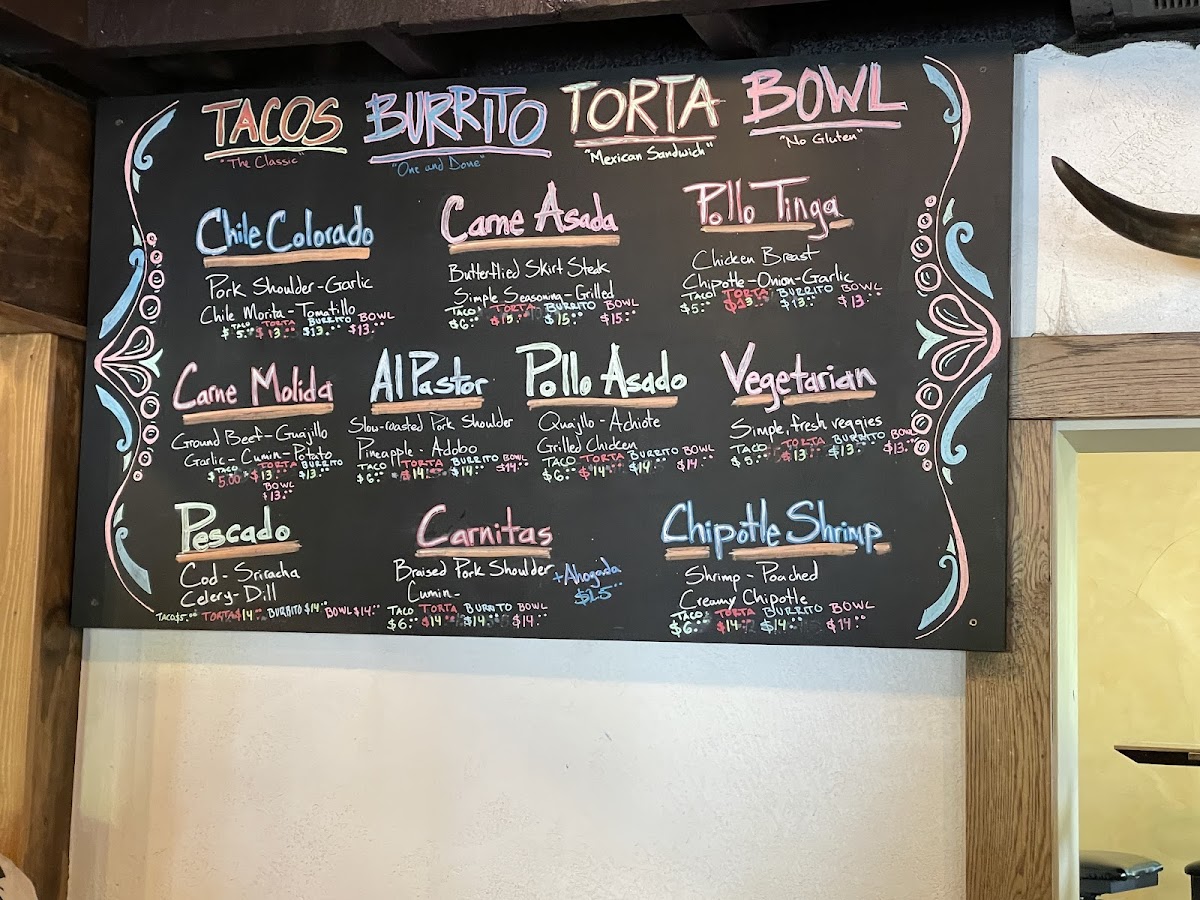 TACOS BURRITO TORTA BOWL
"The Classic" "One and Done" "Mexican Sandwich" "No Gluten"
Chile Colorado
Pork Shoulder - Garlic
Chile Morita - Tomatillo
TACO TORTA BURRITO BOWL
$5.00 $13.00 $13.00 $13.00
Carne Asada
Butterflied Skirt Steak
Simple Seasoning - Grilled
TACO TORTA BURRITO BOWL
$6.00 $15.00 $15.00 $15.00
Pollo Tinga
Chicken Breast
Chipotle-Onion-Garlic
TACO TORTA BURRITO BOWL
$5.00 $13.00 $13.00 $13.00
Carne Molida
Ground Beef - Guajillo
Garlic - Cumin - Potato
TACO TORTA BURRITO
5.00 $13.00 $13.00
BOWL
$13.00
Al Pastor
Slow-roasted Pork Shoulder
Pineapple - Adobo
TACO TORTA BURRITO BOWL
$6.00 $14.00 $14.00 $14.00
Pollo Asado
Quajillo - Achiote
Grilled Chicken
TACO TORTA BURRITO BOWL
$6.00 $14.00 $14.00 $14.00
Vegetarian
Simple, fresh veggies
TACO TORTA BURRITO BOWL
$5.00 $13.00 $13.00 $13.00
Pescado
Cod - Sriracha
Celery - Dill
TACO $5.00 TORTA $14.00 BURRITO $14.00 BOWL $14.00
Carnitas
Braised Pork Shoulder
Cumin-
+Ahogada
TACO TORTA BURRITO BOWL
$6.00 $14.00 $14.00 $14.00
Chipotle Shrimp
Shrimp - Poached
Creamy Chipotle
TACO TORTA BURRITO BOWL
$6.00 $14.00 $14.00 $14.00